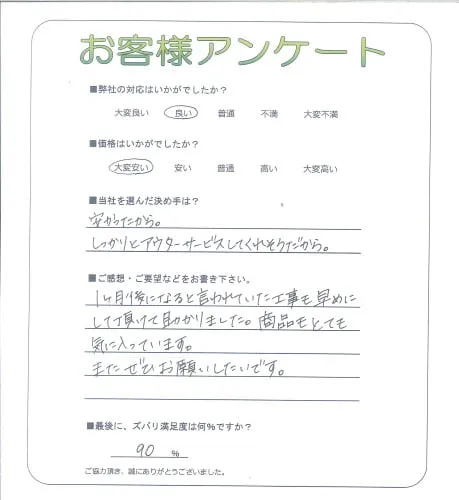 お客様アンケート
■弊社の対応はいかがでしたか?
大変良い 良い 普通 不満 大変不満
■価格はいかがでしたか?
大変安い 安い 普通 高い 大変高い
■当社を選んだ決め手は?
安かったから。
しっかりとアウターサービスしてくれそうだから。
■ご感想・ご要望などをお書き下さい。
1ヶ月後になると言われていた工事も早めに
して頂けて助かりました。商品もとても
気に入っています。
またぜひお願いしたいです。
■最後に、ズバリ満足度は何%ですか?
90 %
ご協力頂き、誠にありがとうございました。